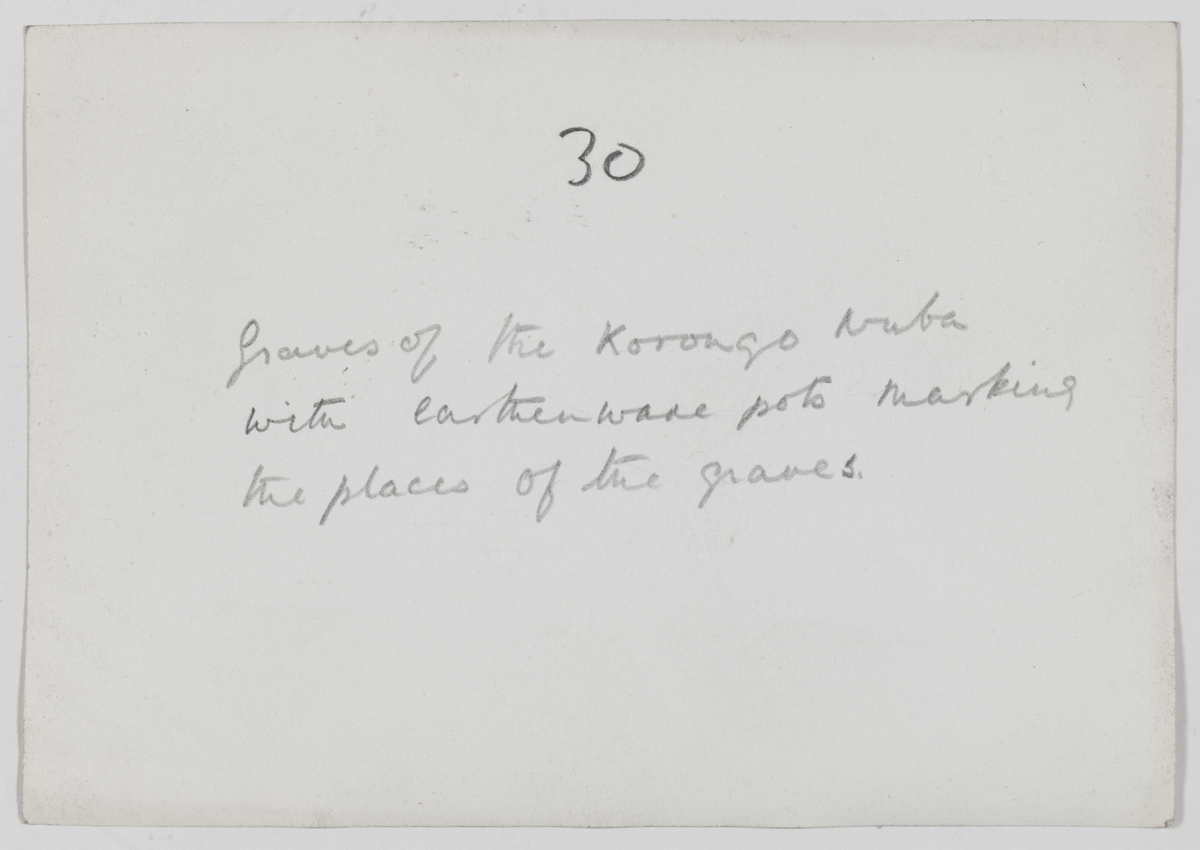 30
Graves of the Korongo Nuba
with earthenware pots marking
the places of the graves.